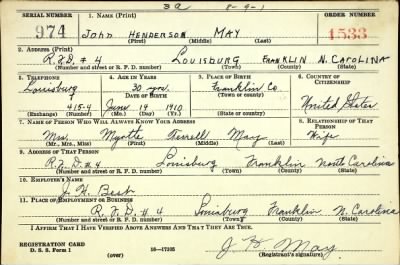 3a 8-9-1
SERIAL NUMBER 1. NAME (Print) ORDER NUMBER
974 JOHN HENDERSON MAY 4533
(First) (Middle) (Last)
2. ADDRESS (Print)
R.F.D. # 4 LOUISBURG FRANKLIN N. CAROLINA
(Number and street or R. F. D. number) (Town) (County) (State)
3. TELEPHONE 4. AGE IN YEARS 5. PLACE OF BIRTH 6. COUNTRY OF CITIZENSHIP
Louisburg 30 yrs. Franklin Co.
DATE OF BIRTH (Town or county)
415-4 June 19 1910 United States
(Exchange) (Number) (Mo.) (Day) (Yr.) (State or country)
7. NAME OF PERSON WHO WILL ALWAYS KNOW YOUR ADDRESS 8. RELATIONSHIP OF THAT PERSON
Mrs. Terrell May Wife
(Mr., Mrs., Miss) (First) (Middle) (Last)
9. ADDRESS OF THAT PERSON
R.F.D. #4 Louisburg Franklin North Carolina
(Number and street or R. F. D. number) (Town) (County) (State)
10. EMPLOYER'S NAME
Best
11. PLACE OF EMPLOYMENT OR BUSINESS
R. F. D. # 4 Louisburg Franklin N. Carolina
(Number and street or R. F. D. number) (Town) (County) (State)
I AFFIRM THAT I HAVE VERIFIED ABOVE ANSWERS AND THAT THEY ARE TRUE.
REGISTRATION CARD
D. S. S. Form 1 (over) 16—17105 J. H. May
(Registrant's signature)